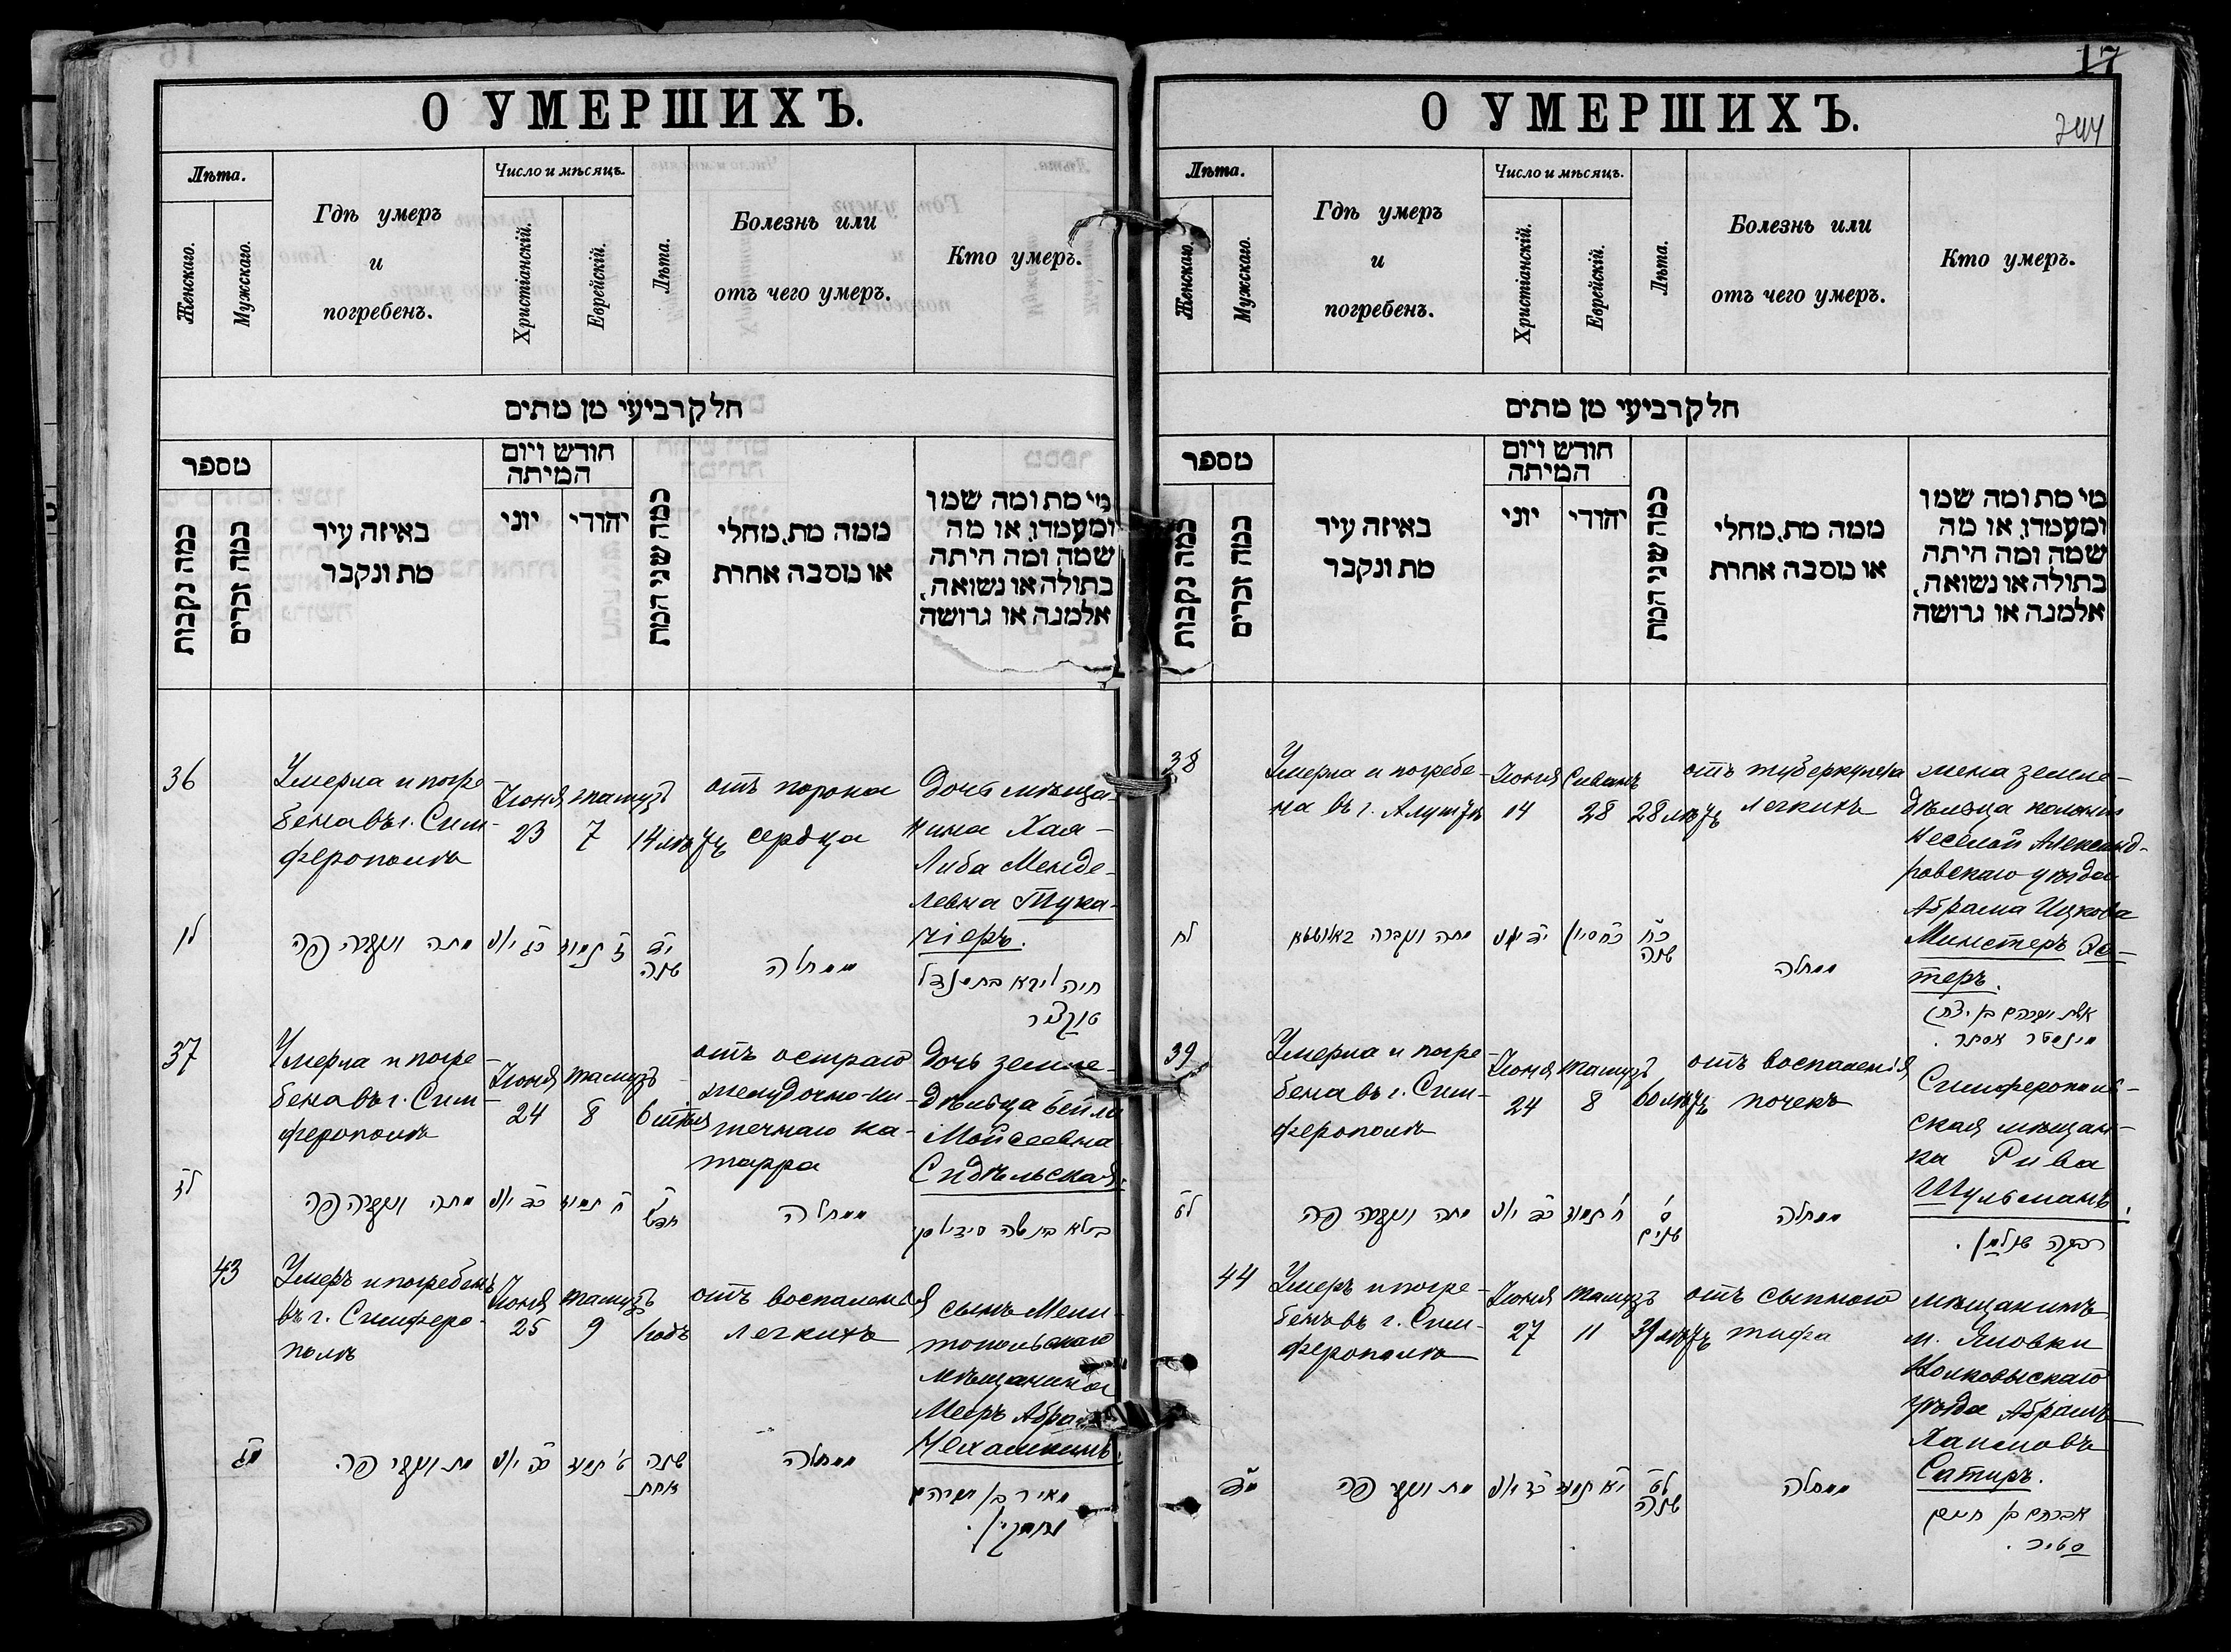 О УМЕРШИХЪ.
Лѣта.
Женскаго.
Мужскаго.
Гдѣ умеръ
и
погребенъ.
Число и мѣсяцъ.
Христіанскій.
Еврейскій.
Лѣта.
Болезнь или
отъ чего умеръ.
Кто умеръ.
חלק רביעי מן מתים
מספר
כמה נקבות
כמה זכרים
באיזה עיר
מת ונקבר
חודש ויום
המיתה
יוני
יהודי
כמה שני המת
ממה מת, מחלי
או מסבה אחרת
מי מת ומה שמו
ומעמדו, או מה
שמה ומה היתה
בתולה או נשואה,
אלמנה או גרושה
36
Умерла и погре-
бена въ г. Сим-
ферополѣ
Іюня
23
тамузъ
7
14 лѣтъ
отъ порока
сердца
Дочь мѣща-
нина Хая-
Либа Менде-
левна Тука-
чіеръ.
לו
מתה ונקברה פה
כג יוני
ז תמוז
יד
שנה
ממחלה
חיה ליבא בת מענדל
37
Умерла и погре-
бена въ г. Сим-
ферополѣ
Іюня
24
тамузъ
8
отъ остраго
желудочно-ки-
шечнаго ка-
тарра
Дочь земле-
дѣльца Бейла
Мойсеевна
Сидѣльская.
לז
מתה ונקברה פה
כד יוני
ח תמוז
ממחלה
ביילא בת משה
43
Умеръ и погребенъ
въ г. Симферо-
полѣ
Іюня
25
тамузъ
9
1 годъ
отъ воспаленія
легкихъ
сынъ Мели-
топольскаго
мѣщанина
Мееръ
Нехамкинъ.
מג
מת ונקבר פה.
כה יוני
ט תמוז
שנה
אחת
ממחלה
מאיר בן אברהם
נחמקין.
17
244
О УМЕРШИХЪ.
Лѣта.
Женскаго.
Мужскаго.
Гдѣ умеръ
и
погребенъ.
Число и мѣсяцъ.
Христіанскій.
Еврейскій.
Лѣта.
Болезнь или
отъ чего умеръ.
Кто умеръ.
חלק רביעי מן מתים
מספר
כמה נקבות
כמה זכרים
באיזה עיר
מת ונקבר
חודש ויום
המיתה
יוני
יהודי
כמה שני המת
ממה מת, מחלי
או מסבה אחרת
מי מת ומה שמו
ומעמדו, או מה
שמה ומה היתה
בתולה או נשואה,
אלמנה או גרושה
38
Умерла и погребе-
на въ г. Алуштѣ
Іюня
14
Сиванъ
28
28 лѣтъ
отъ туберкулеза
легкихъ
жена земле-
дѣльца колоніи
Веселой Александ-
ровскаго уѣзда
Абрама Ицкова
Минстеръ Эс-
теръ.
לח
מתה ונקברה באלושטא
יד יוני
כח סיון
כח
שנה
ממחלה
אשת אברהם בן יצחק
מינסטר אסתר.
39
Умерла и погре-
бена въ г. Сим-
ферополѣ
Іюня
24
тамузъ
8
60 лѣтъ
отъ воспаленія
почекъ
Симферополь-
ская мѣщан-
ка Рива
Шульманъ.
לט
מתה ונקברה פה
כד יוני
ח תמוז
ס
שנים
ממחלה
רבקה שולמן.
44
Умеръ и погре-
бенъ въ г. Сим-
ферополѣ
Іюня
27
тамузъ
11
39 лѣтъ
отъ сыпного
тифа
мѣщанинъ
м. Яловки
Волковыскаго
уѣзда Абрамъ
Хаимовъ
Сатиръ.
מד
מת ונקבר פה
כז יוני
יא תמוז
לט
שנה
ממחלה
אברהם בן חיים
סטיר.